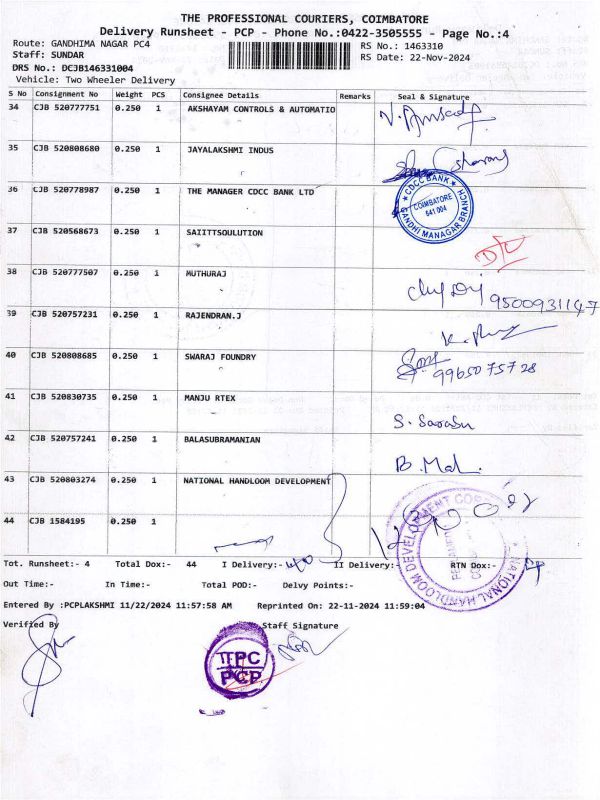 THE PROFESSIONAL COURIERS, COIMBATORE
Delivery Runsheet - PCP - Phone No.:0422-3505555 - Page No.:4
Route: GANDHIMA NAGAR PC4 RS No.: 1463310
Staff: SUNDAR RS Date: 22-Nov-2024
DRS No.: DCJB146331004
Vehicle: Two Wheeler Delivery
S No Consignment No Weight PCS Consignee Details Remarks Seal & Signature
34 CJB 520777751 0.250 1 AKSHAYAM CONTROLS & AUTOMATIO
35 CJB 520808680 0.250 1 JAYALAKSHMI INDUS
36 CJB 520778987 0.250 1 THE MANAGER CDCC BANK LTD
CDCC BANK
COIMBATORE
641 004
GANDHI MANAGAR BRANCH
37 CJB 520568673 0.250 1 SAIITTSOULUTION
38 CJB 520777507 0.250 1 MUTHURAJ
9500931147
39 CJB 520757231 0.250 1 RAJENDRAN.J
40 CJB 520808685 0.250 1 SWARAJ FOUNDRY
9965075728
41 CJB 520830735 0.250 1 MANJU RTEX
S. Sarasu
42 CJB 520757241 0.250 1 BALASUBRAMANIAN
43 CJB 520803274 0.250 1 NATIONAL HANDLOOM DEVELOPMENT
44 CJB 1584195 0.250 1
NATIONAL HANDLOOM DEVELOPMENT
Tot. Runsheet:- 4 Total Dox:- 44 I Delivery:- II Delivery:- RTN Dox:-
Out Time:- In Time:- Total POD:- Delvy Points:-
Entered By :PCPLAKSHMI 11/22/2024 11:57:58 AM Reprinted On: 22-11-2024 11:59:04
Verified By Staff Signature
TPC
PCP